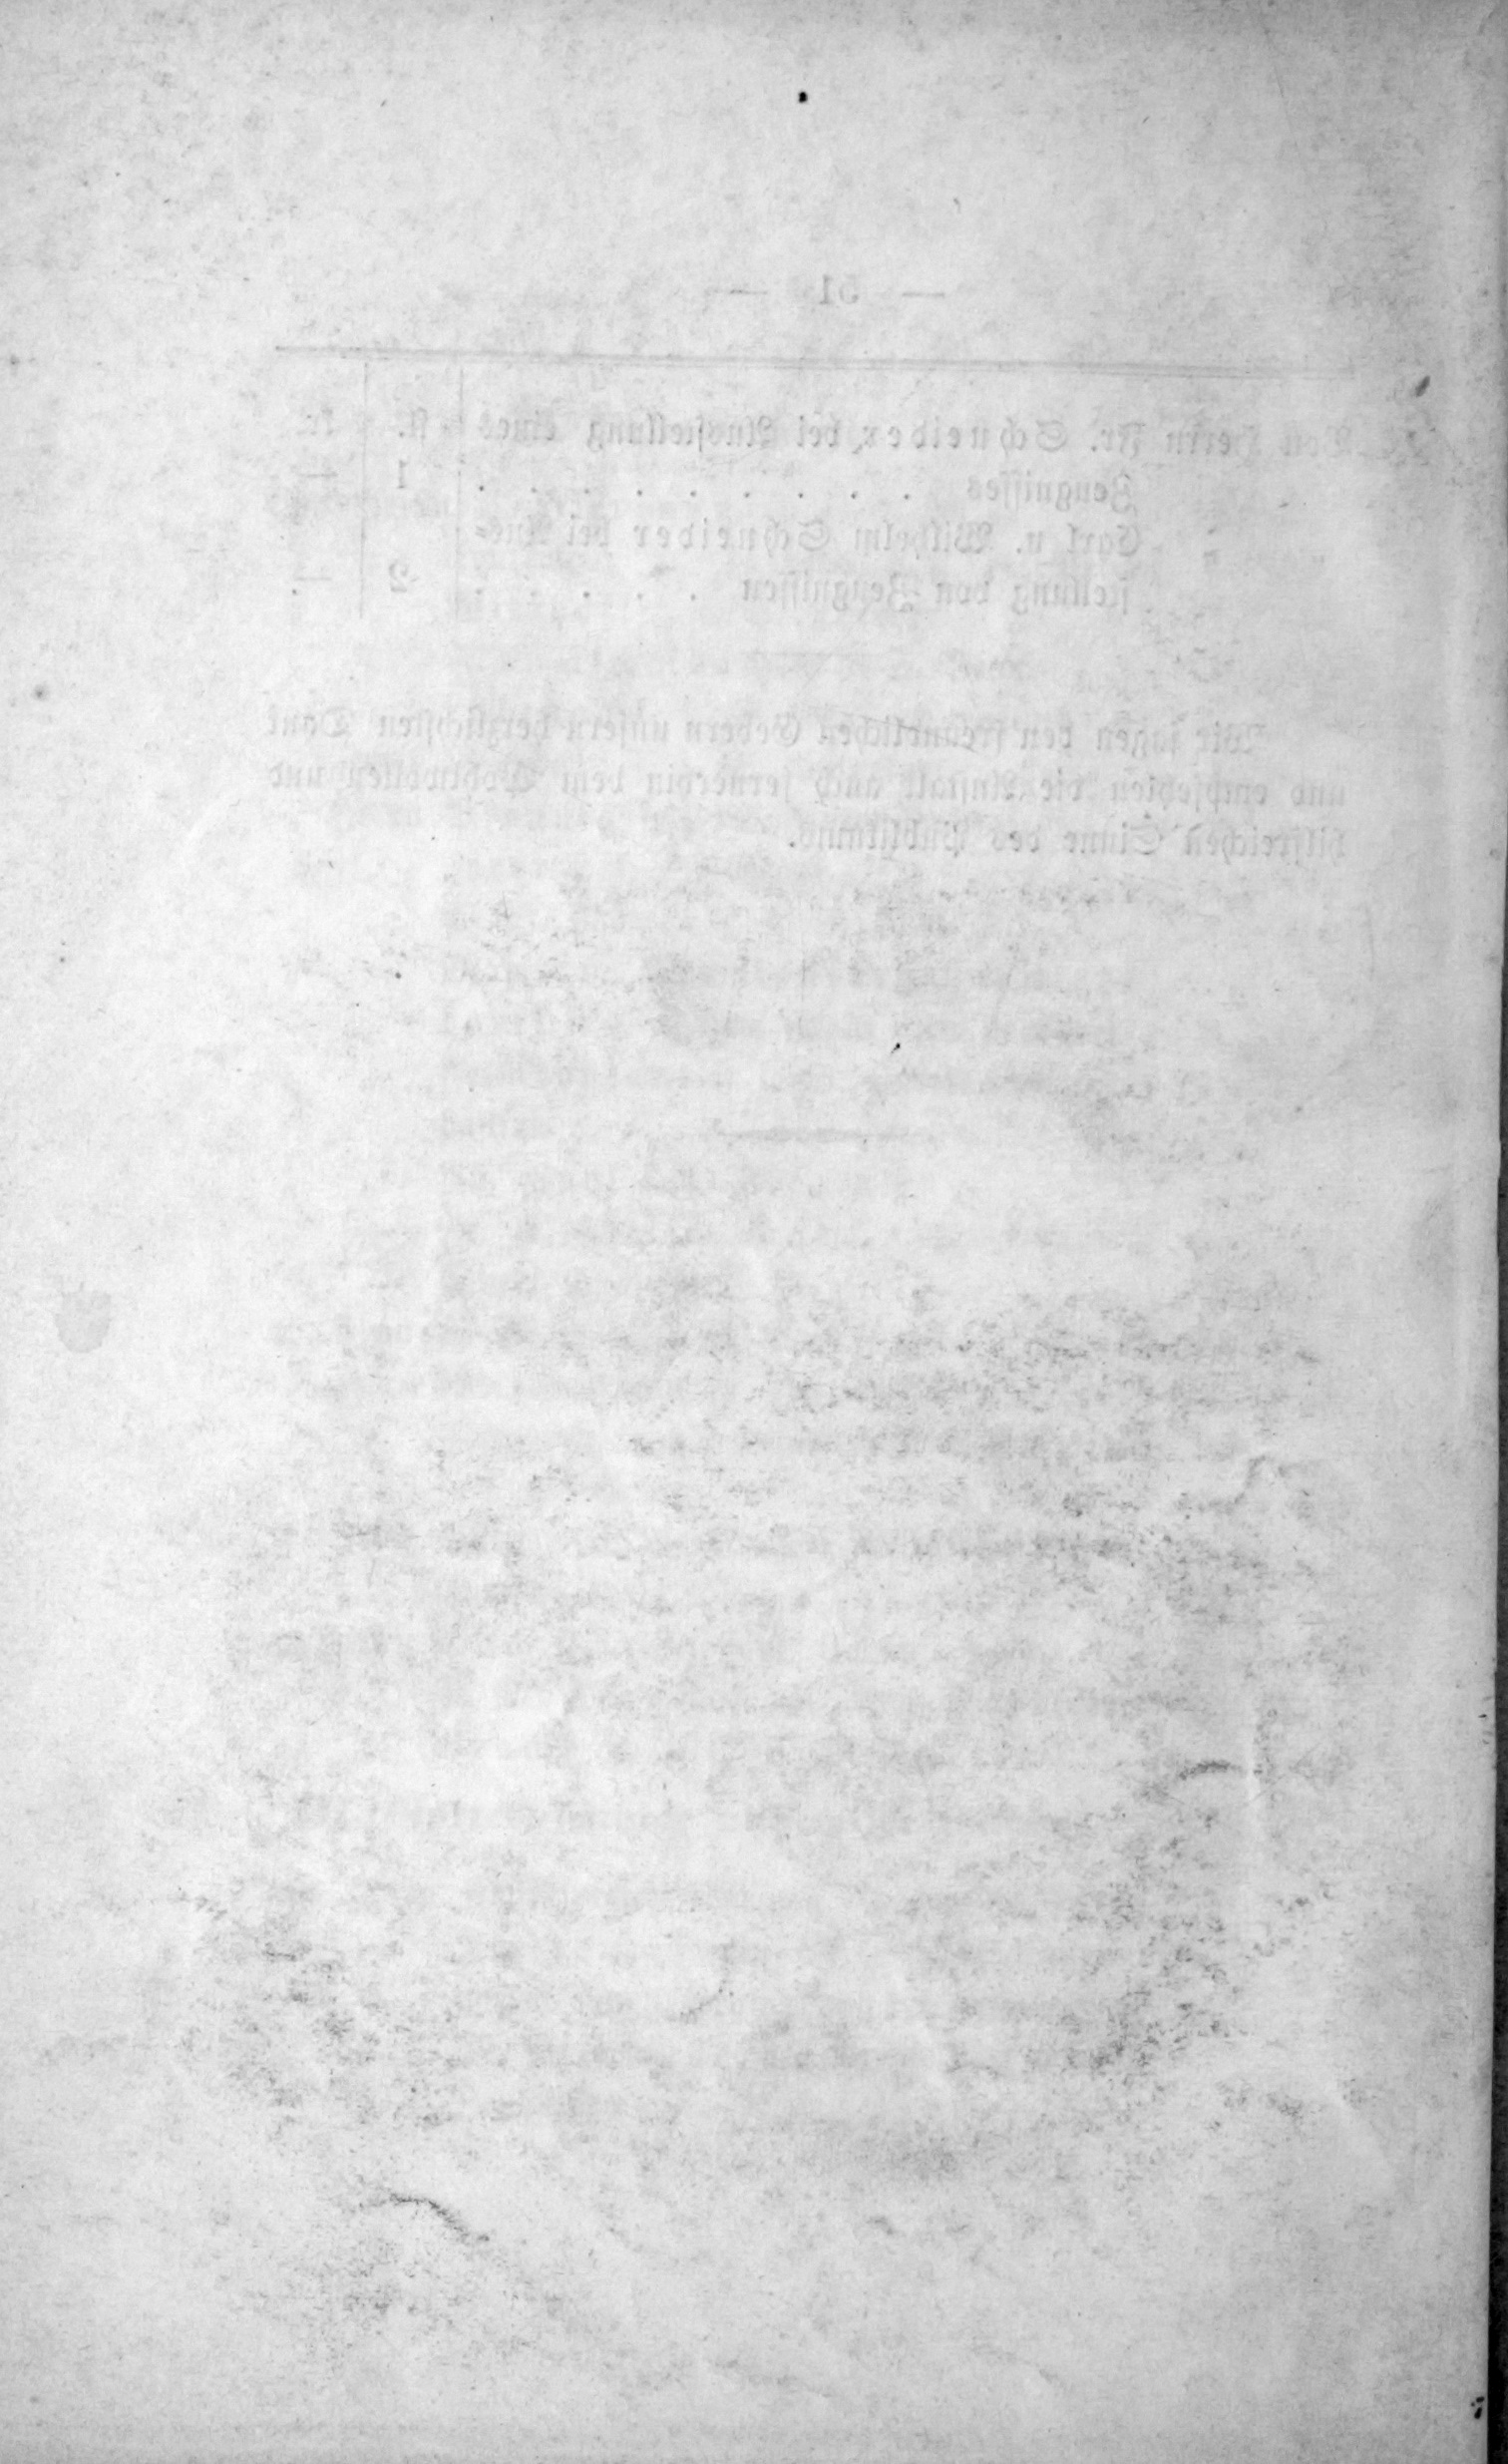 — 51 —
Von Herrn Fr. Schneider bei Ausstellung eines fl. kr.
Zeugnisses . . . . . . . . . 1 —
„ „ Carl u. Wilhelm Schneider bei Aus-
stellung von Zeugnissen . . . . . 2 —
Wir sagen den freundlichen Gebern unsern herzlichsten Dank
und empfehlen die Anstalt auch fernerhin dem Wohlwollen und
hilfreichen Sinne des Publikums.